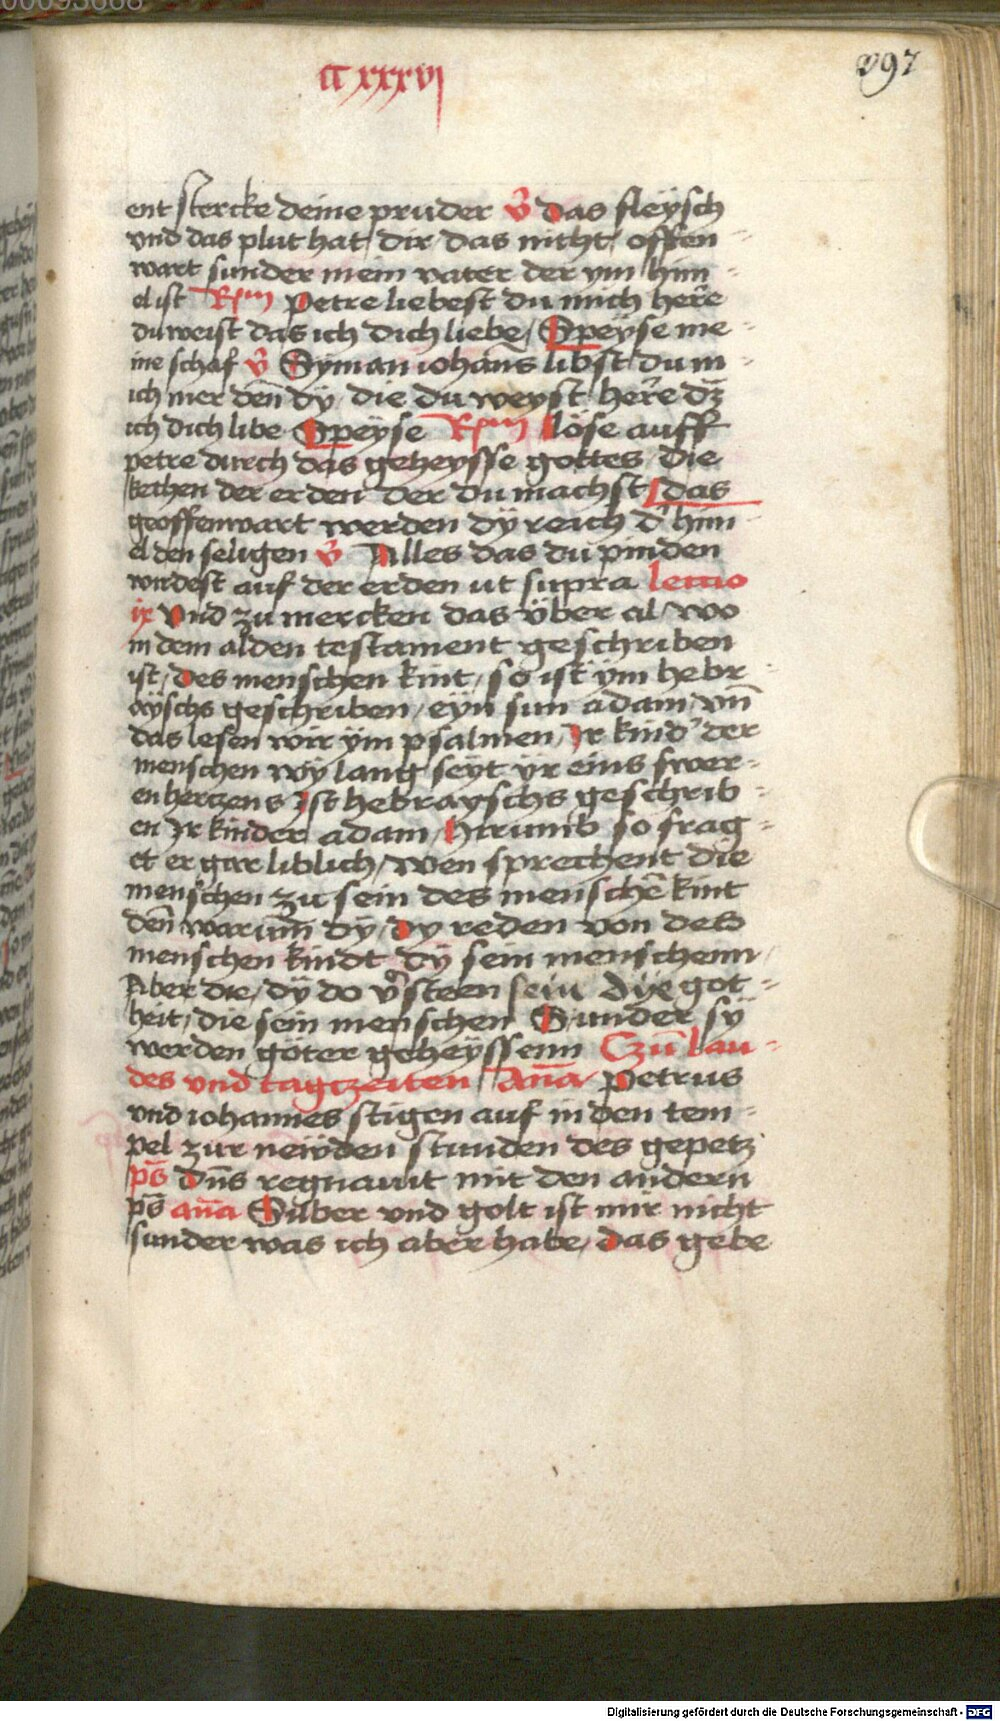 00093668
CC xxxvj
297
ent stercke deine pruder V̄ das fleysch
vnd das plut hat dir das nitht offen-
wart sunder mein vater der ym him-
el ist Rsm Petre liebest du mich here
du weist das ich dich liebe / Speyse me-
ine schaf V̄ Syman iohans libst du m-
ich mer den̄ dÿ die du weyst here dz̄
ich dich libe Speyse Rsm löse auff
petre durch das geheysse gottes die
kethen der erden der du machst das
geoffenwart werden dÿ reich d' him-
el den seligen V̄ Alles das du pinden
wirdest auf der erden ut supra lectio
ix Vnd zu mercken das über al / wo
in dem alden testament geschriben
ist / des menschen kint / so ist ÿm hebr-
äyschs geschriben / eyn sun adam / vn̄
das lesen wir ÿm psalmen / Ir kind' der
menschen wÿ lang seyt ÿr eins swer-
en hertzens Ist hebrayschs geschrib-
en Ir kinder adam / Hirumb so frag-
et er gar liblich / wen sprechent die
menschen zu sein des menschē kint
den̄ warum̄ dÿ / dy reden von des
menschen kindt dÿ sein menschenn /
Aber die / dÿ do v'steen sein dye got-
heit / die sein menschen Sunder sÿ
werden göter geheÿssenn Czū lau-
des vnd tagczeiten An̄a Petrus
vnd iohannes stigen auf in den tem-
pel zur newden stunden des gepetz
ps̄ Dn̄s regnauit mit den andern
ps̄ an̄a Silber vnd golt ist mir nicht
sunder was ich aber habe / das gebe
Digitalisierung gefördert durch die Deutsche Forschungsgemeinschaft - DFG